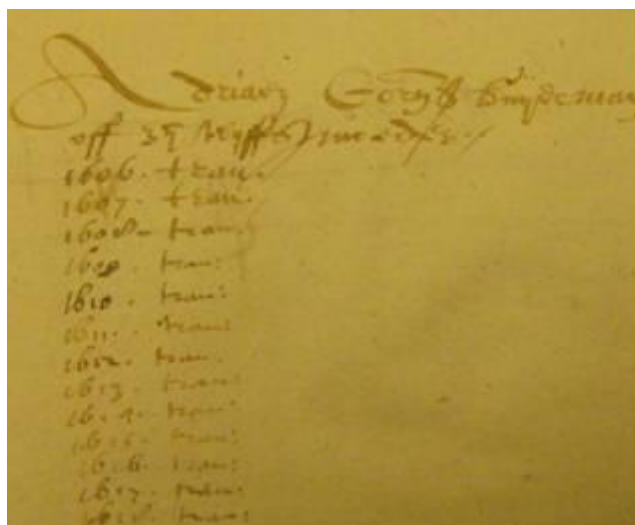 Adriaen Corn
off
1606. tran.
1607. tran.
1608. tran.
1609. tran:
1610. tran:
1611. tran:
1612. tran.
1613. tran:
1614. tran:
1615. tran:
1616. tran:
1617. tran:
1618. tran: